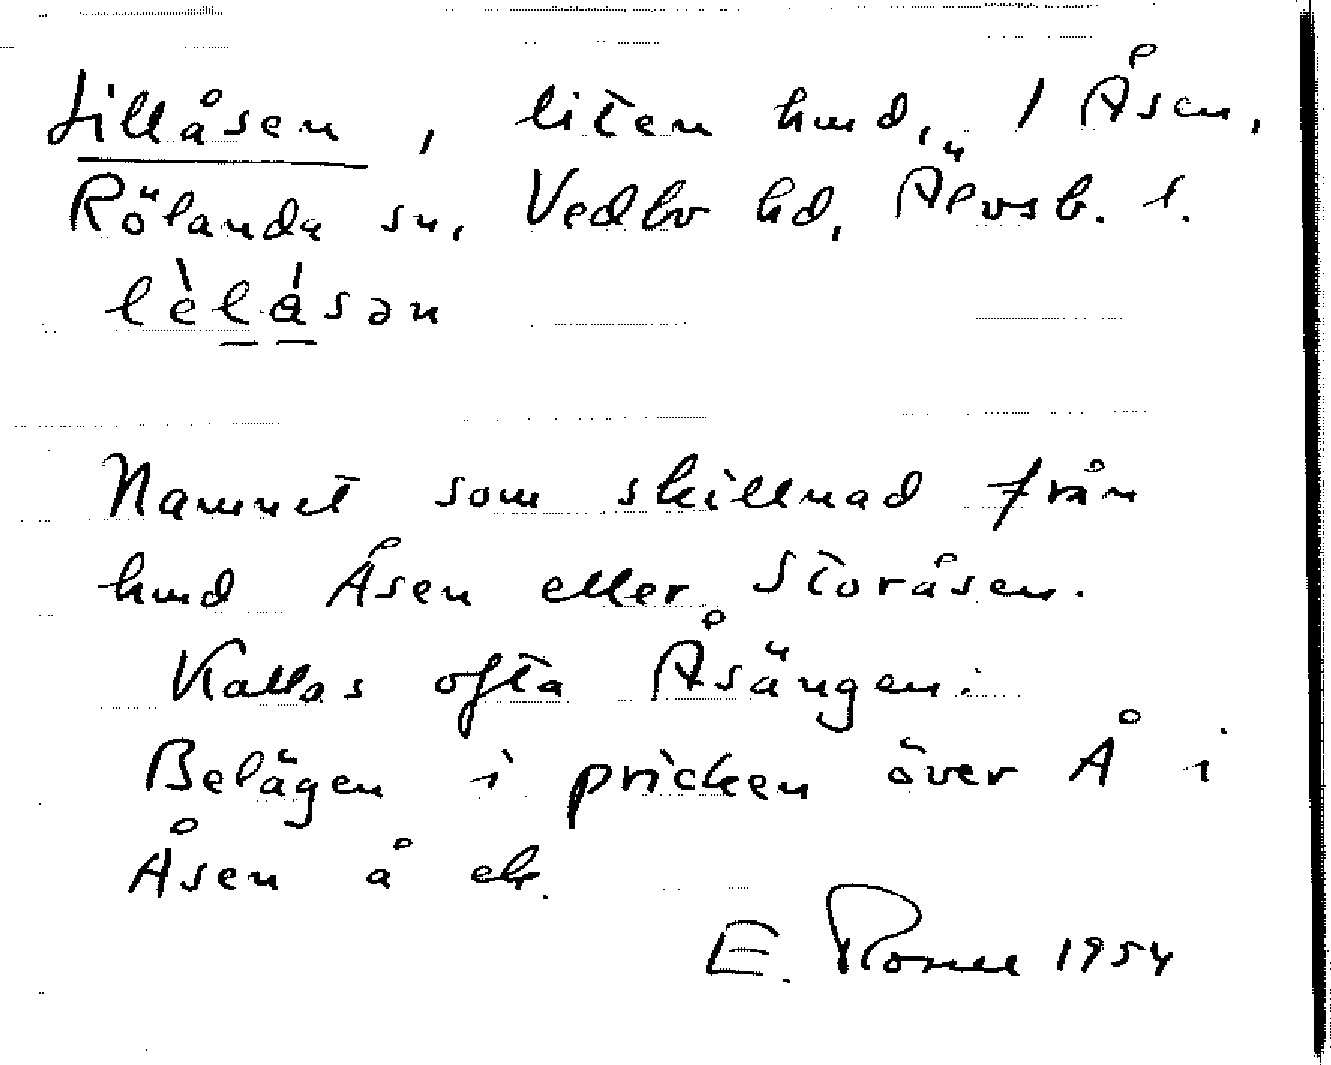 Lillåsen, liten hmd, 1 Åsen,
Rölanda sn, Vedbo hd, Älvsb. l.
lèlåsən
Namnet som skillnad från
hmd Åsen eller Storåsen.
Kallas ofta Åsängen.
Belägen i pricken över Å i
Åsen å ek.
E. 1954